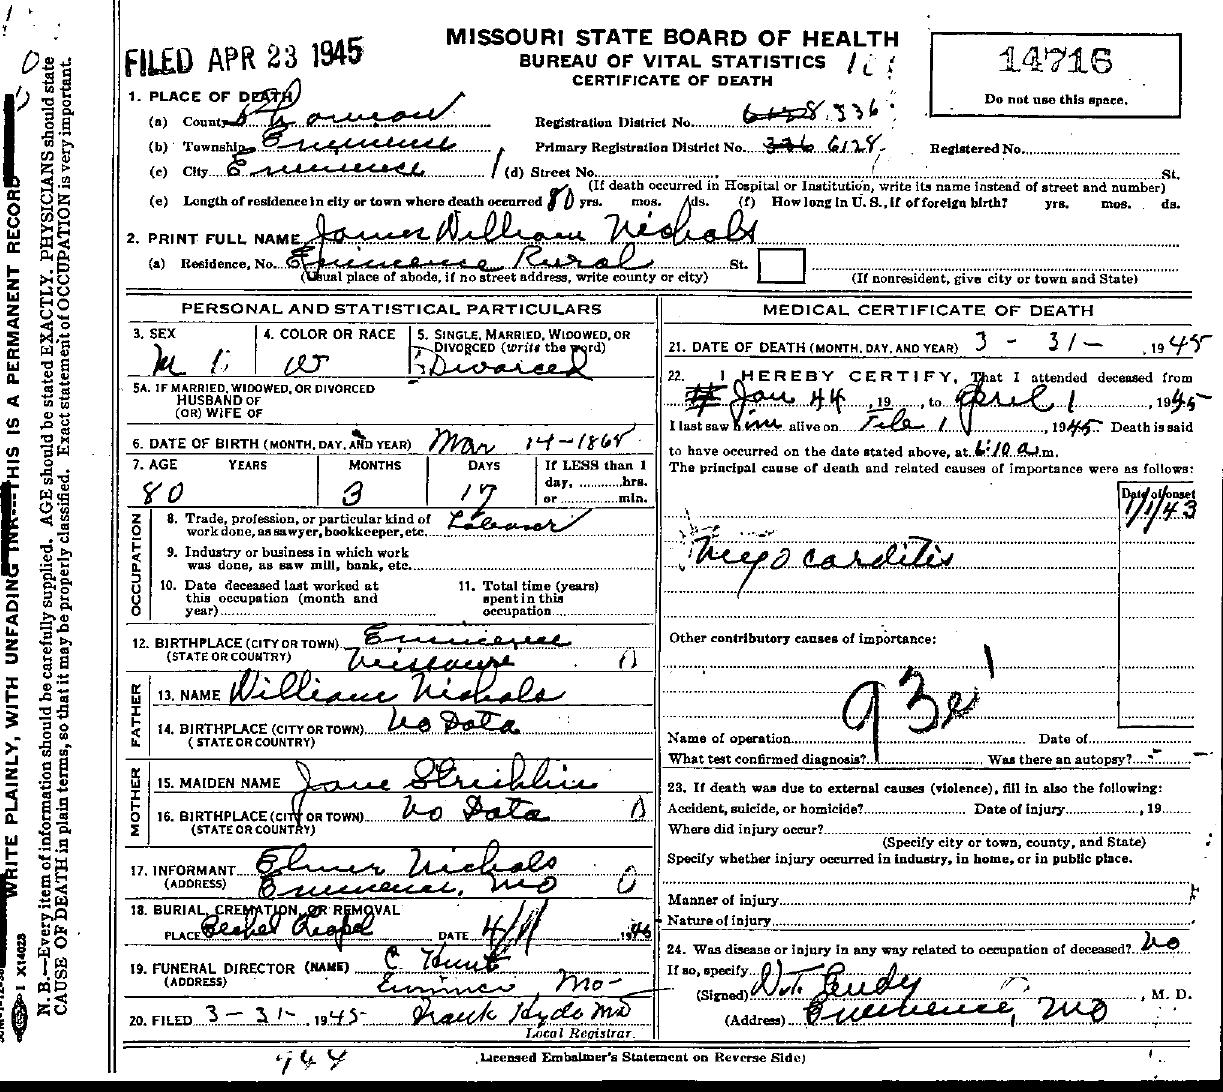 FILED APR 23 1945
MISSOURI STATE BOARD OF HEALTH
BUREAU OF VITAL STATISTICS
CERTIFICATE OF DEATH
14716
Do not use this space.
1. PLACE OF DEATH
(a) County Shannon
Registration District No. 6128 336
(b) Township Eminence
Primary Registration District No. 336 6128
Registered No.
(c) City Eminence (d) Street No. St.
(If death occurred in Hospital or Institution, write its name instead of street and number)
(e) Length of residence in city or town where death occurred 80 yrs. mos. ds. (f) How long in U. S., if of foreign birth? yrs. mos. ds.
2. PRINT FULL NAME James William Nichols
(a) Residence, No. Eminence Rural St.
(Usual place of abode, if no street address, write county or city) (If nonresident, give city or town and State)
PERSONAL AND STATISTICAL PARTICULARS
3. SEX M
4. COLOR OR RACE W
5. SINGLE, MARRIED, WIDOWED, OR DIVORCED (write the word) Divorced
5A. IF MARRIED, WIDOWED, OR DIVORCED
HUSBAND OF
(OR) WIFE OF
6. DATE OF BIRTH (MONTH, DAY, AND YEAR) Mar 14-1865
7. AGE YEARS MONTHS DAYS If LESS than 1
day, hrs.
80 3 17 or min.
OCCUPATION
8. Trade, profession, or particular kind of
work done, as sawyer, bookkeeper, etc. Laborer
9. Industry or business in which work
was done, as saw mill, bank, etc.
10. Date deceased last worked at
this occupation (month and
year)
11. Total time (years)
spent in this
occupation
12. BIRTHPLACE (CITY OR TOWN) Eminence
(STATE OR COUNTRY) Missouri
FATHER
13. NAME William Nichols
14. BIRTHPLACE (CITY OR TOWN) No Data
(STATE OR COUNTRY)
MOTHER
15. MAIDEN NAME Jane
16. BIRTHPLACE (CITY OR TOWN) No Data
(STATE OR COUNTRY)
17. INFORMANT Elmer Nichols
(ADDRESS) Eminence, Mo
18. BURIAL, CREMATION, OR REMOVAL
PLACE Chapel DATE 4/1 1945
19. FUNERAL DIRECTOR (NAME) C Hunt
(ADDRESS) Eminence Mo-
20. FILED 3-31-, 1945 Frank Hyde MD
Local Registrar.
MEDICAL CERTIFICATE OF DEATH
21. DATE OF DEATH (MONTH, DAY, AND YEAR) 3 - 31 - , 1945
22. I HEREBY CERTIFY, That I attended deceased from
Jan 44, 19, to April 1, 1945
I last saw him alive on Feb 1, 1945 Death is said
to have occurred on the date stated above, at 6:10 a.m.
The principal cause of death and related causes of importance were as follows:
Date of onset
1/1/43
Myocarditis
Other contributory causes of importance:
93e
Name of operation Date of
What test confirmed diagnosis? Was there an autopsy?
23. If death was due to external causes (violence), fill in also the following:
Accident, suicide, or homicide? Date of injury, 19
Where did injury occur?
(Specify city or town, county, and State)
Specify whether injury occurred in industry, in home, or in public place.
Manner of injury
Nature of injury
24. Was disease or injury in any way related to occupation of deceased? No
If so, specify
(Signed) , M. D.
(Address) Eminence, Mo
Licensed Embalmer's Statement on Reverse Side)
944
WRITE PLAINLY, WITH UNFADING INK---THIS IS A PERMANENT RECORD
N. B.—Every item of information should be carefully supplied. AGE should be stated EXACTLY. PHYSICIANS should state
CAUSE OF DEATH in plain terms, so that it may be properly classified. Exact statement of OCCUPATION is very important.
1 X14028